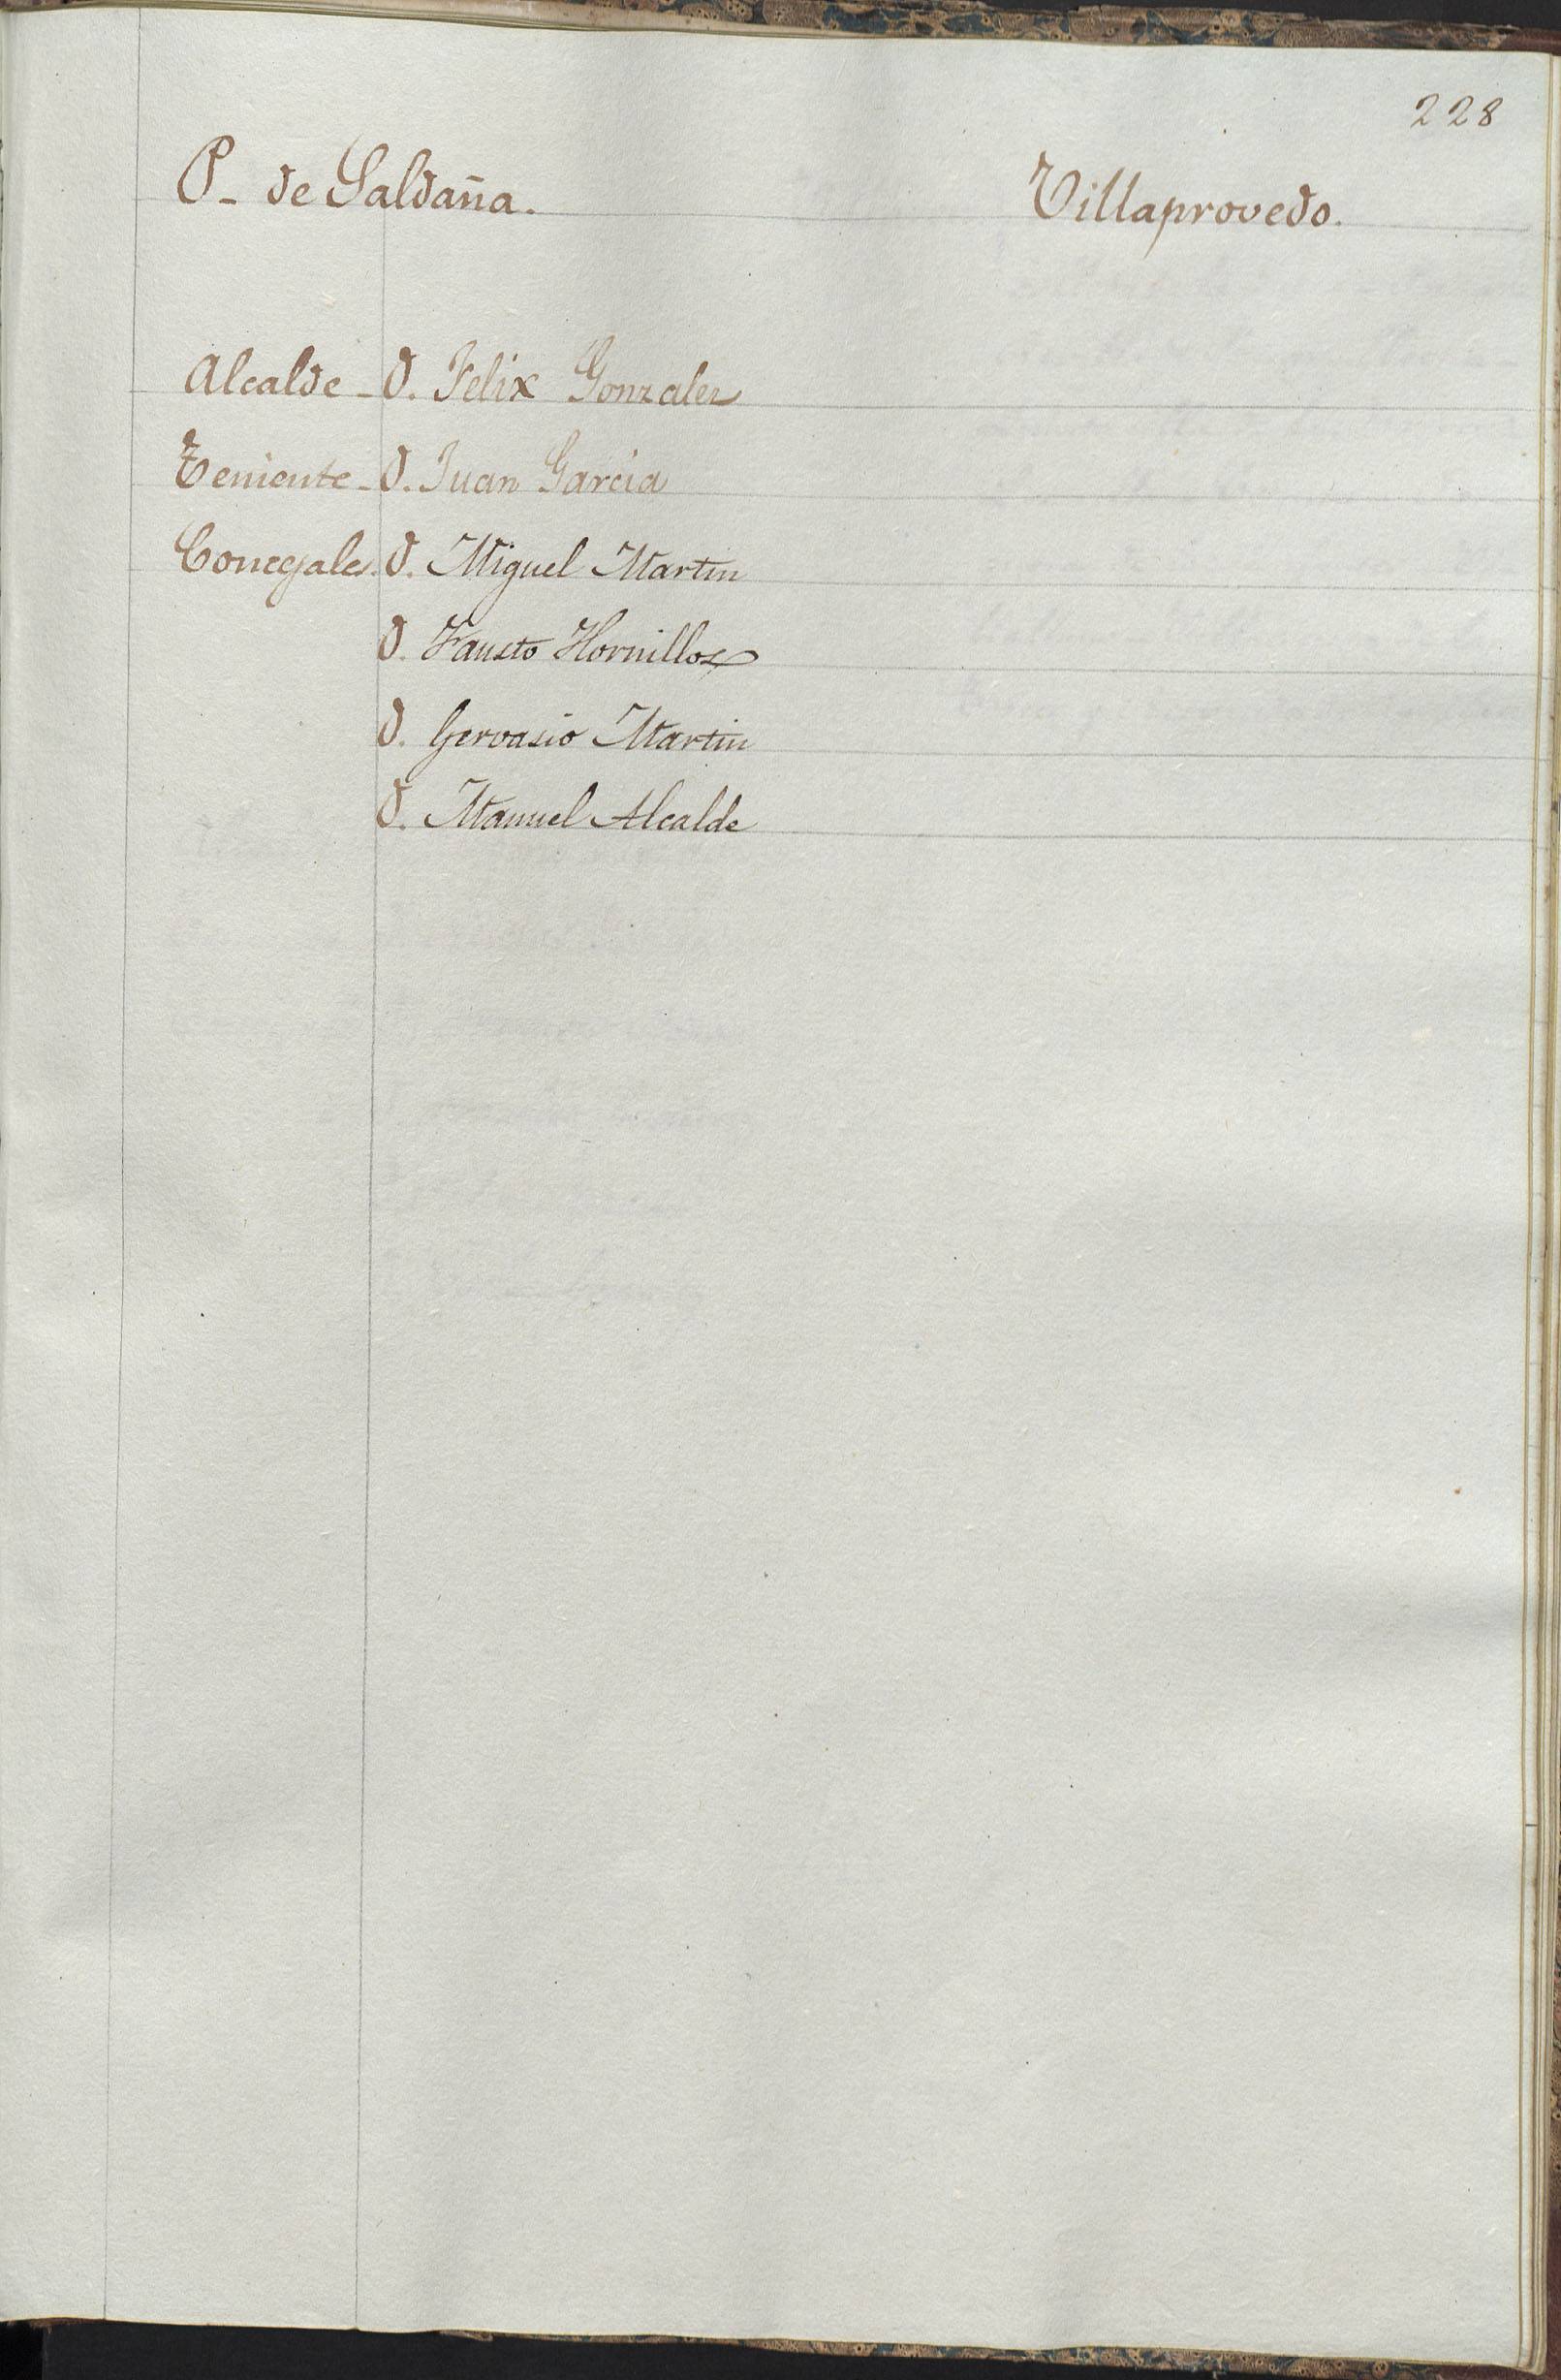 228
P- de Saldaña. Villaprovedo.
Alcalde - D. Felix Gonzalez
Teniente - D. Juan Garcia
Concegales. D. Miguel Martin
D. Fausto Hornillos
D. Gervasio Martin
D. Manuel Alcalde